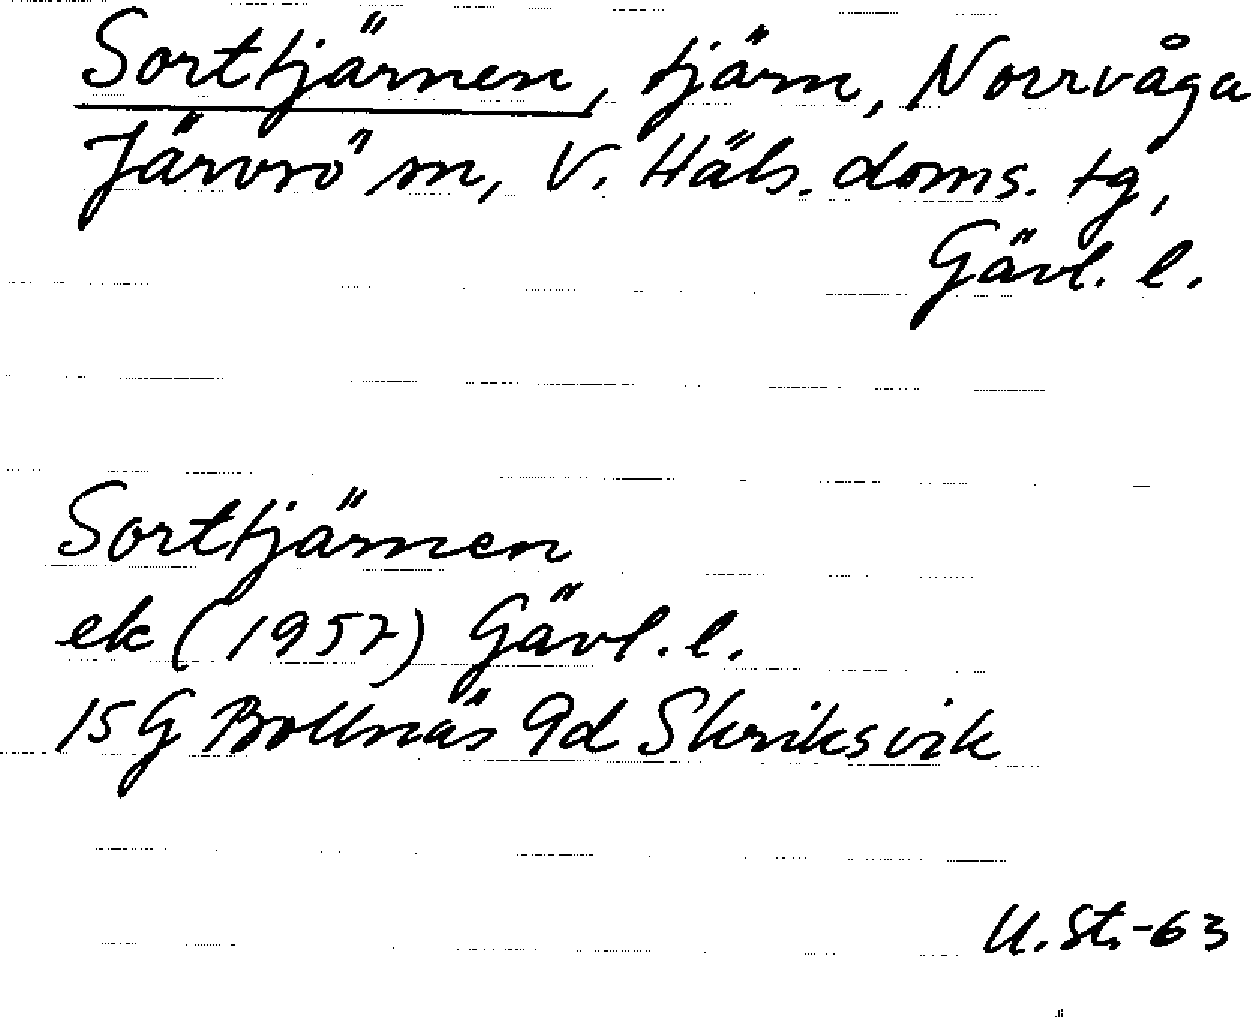 Sorttjärnen, tjärn, Norrvåga
Järvsö sn, V. Häls. doms. tg,
Gävl. l.
Sorttjärnen
ek (1957) Gävl. l.
15G Bollnäs 9d Skriksvik
U. St.-63